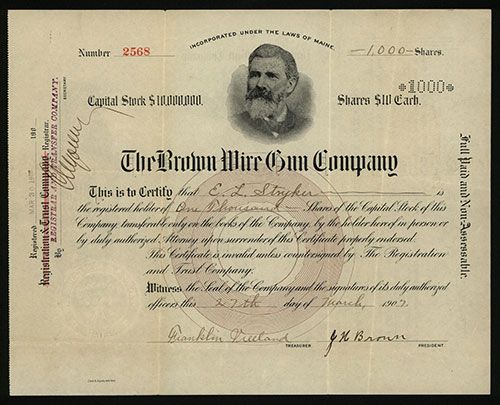 INCORPORATED UNDER THE LAWS OF MAINE.
Number 2568
—1,000— Shares.
1000
Capital Stock $10,000,000.
Shares $10 Each.
The Brown Wire Gun Company
This is to Certify that E. L. Stryker is
the registered holder of One Thousand Shares of the Capital Stock of this
Company transferable only on the books of the Company by the holder hereof in person or
by duly authorized Attorney upon surrender of this Certificate properly endorsed.
This Certificate is invalid unless countersigned by The Registration
and Trust Company.
Witness the Seal of the Company and the signatures of its duly authorized
officers this 27th day of March, 1907.
Franklin Vreeland
TREASURER
J H Brown
PRESIDENT.
Full Paid and Non-Assessable.
Registered MAR 30 190
Registration & Trust Company, Registrar,
REGISTRAR & TRANSFER COMPANY.
By
SECRETARY